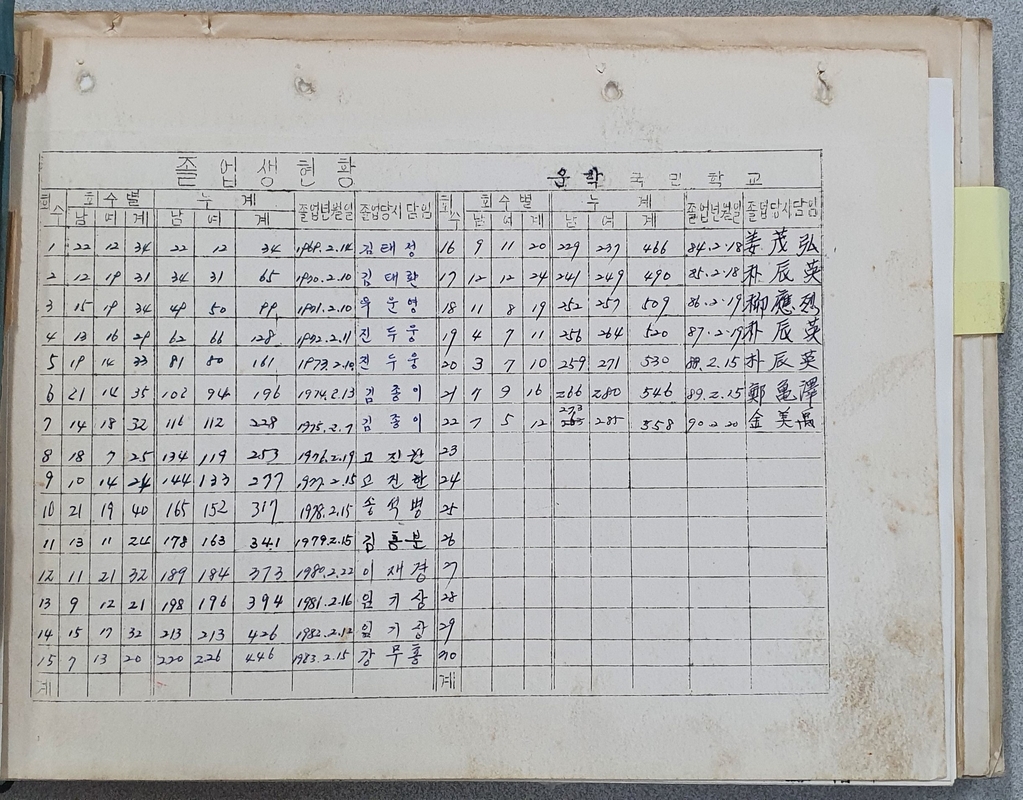 졸업생현황 운학 국민학교
회수 회수별 누계 졸업년월일 졸업당시담임 회수 회수별 누계 졸업년월일 졸업당시담임
남 여 계 남 여 계 남 여 계 남 여 계
1 22 12 34 22 12 34 1969.2.14 김태정 16 9 11 20 229 237 466 84.2.18 姜茂弘
2 12 19 31 34 31 65 1970.2.10 김태환 17 12 12 24 241 249 490 85.2.18 朴辰英
3 15 19 34 49 50 99 1971.2.10 우운영 18 11 8 19 252 257 509 86.2.19 柳應烈
4 13 16 29 62 66 128 1972.2.11 진두웅 19 4 7 11 256 264 520 87.2.19 朴辰英
5 19 14 33 81 80 161 1973.2.10 진두웅 20 3 7 10 259 271 530 88.2.15 朴辰英
6 21 14 35 102 94 196 1974.2.13 김종이 21 7 9 16 266 280 546 89.2.15 鄭亀澤
7 14 18 32 116 112 228 1975.2.7 김종이 22 7 5 12 273 285 558 90.2.20 金美
8 18 7 25 134 119 253 1976.2.19 고진한 23
9 10 14 24 144 133 277 1977.2.15 고진한 24
10 21 19 40 165 152 317 1978.2.15 송석병 25
11 13 11 24 178 163 341 1979.2.15 김흥분 26
12 11 21 32 189 184 373 1980.2.22 이재경 27
13 9 12 21 198 196 394 1981.2.16 임기상 28
14 15 17 32 213 213 426 1982.2.12 임기상 29
15 7 13 20 220 226 446 1983.2.15 강무홍 30
계 계